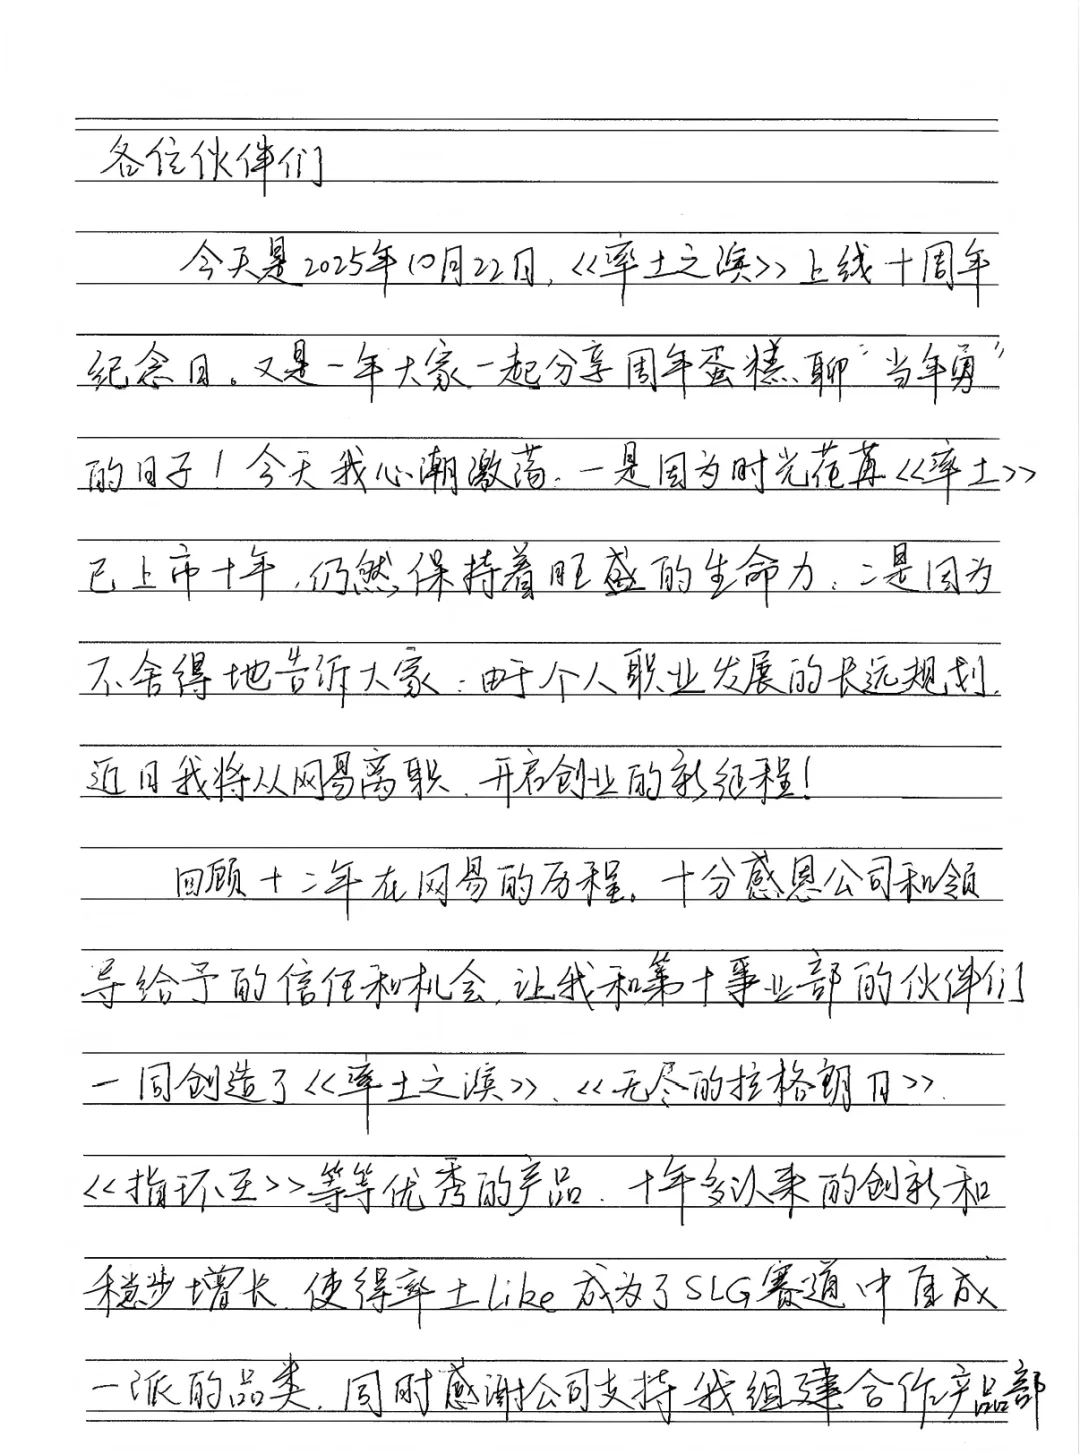 各位伙伴们
今天是2025年10月22日,《率土之滨》上线十周年
纪念日。又是一年大家一起分享周年蛋糕、聊“当年勇”
的日子!今天我心潮激荡:一是因为时光荏苒《率土》
已上市十年,仍然保持着旺盛的生命力;二是因为
不舍得地告诉大家:由于个人职业发展的长远规划,
近日我将从网易离职,开启创业的新征程!
回顾十二年在网易的历程,十分感恩公司和领
导给予的信任和机会,让我和第十事业部的伙伴们
一同创造了《率土之滨》、《无尽的拉格朗日》、
《指环王》等等优秀的产品,十年多以来的创新和
稳步增长,使得率土Like成为了SLG赛道中自成
一派的品类,同时感谢公司支持我组建合作产品部